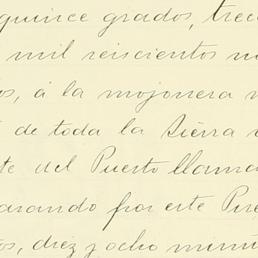 quince grados, trec
mil seiscientos no
os, á la mojonera n
de toda la Sierra
te del Puerto llama
arando por este Pue
os, diez y ocho minu